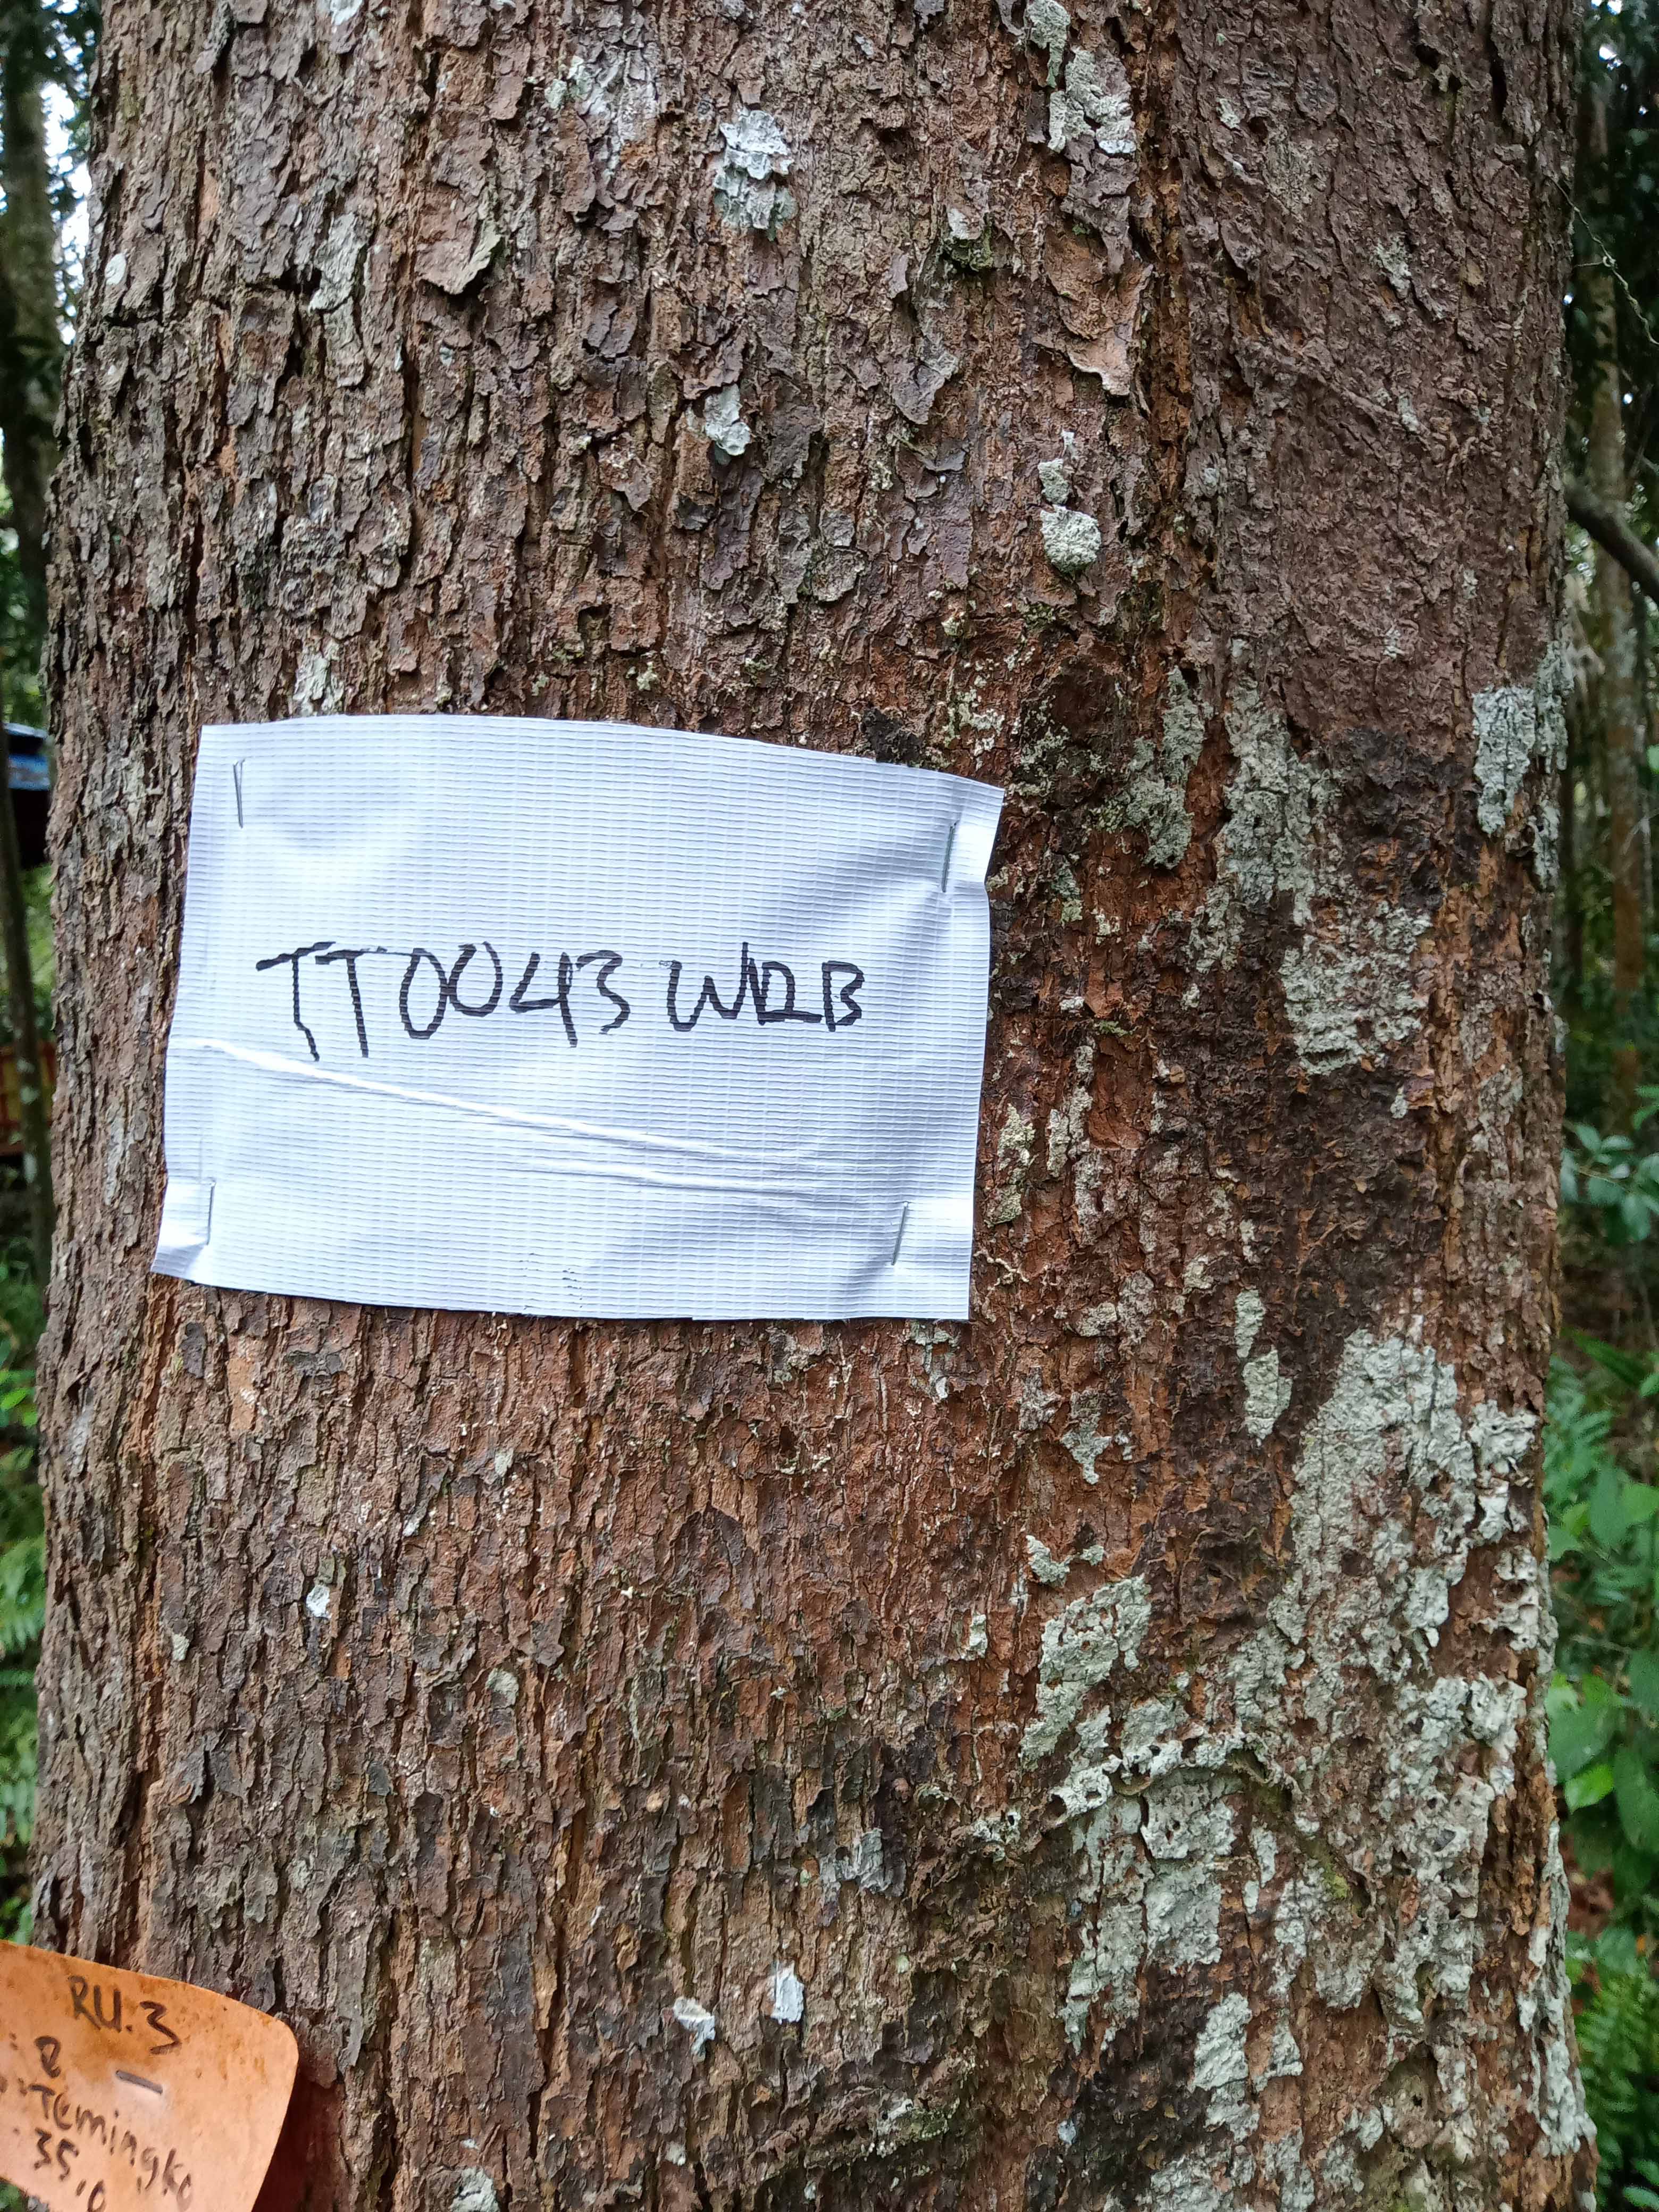 TT0043 WRB
RU.3
: 2
: Temingko
35,0